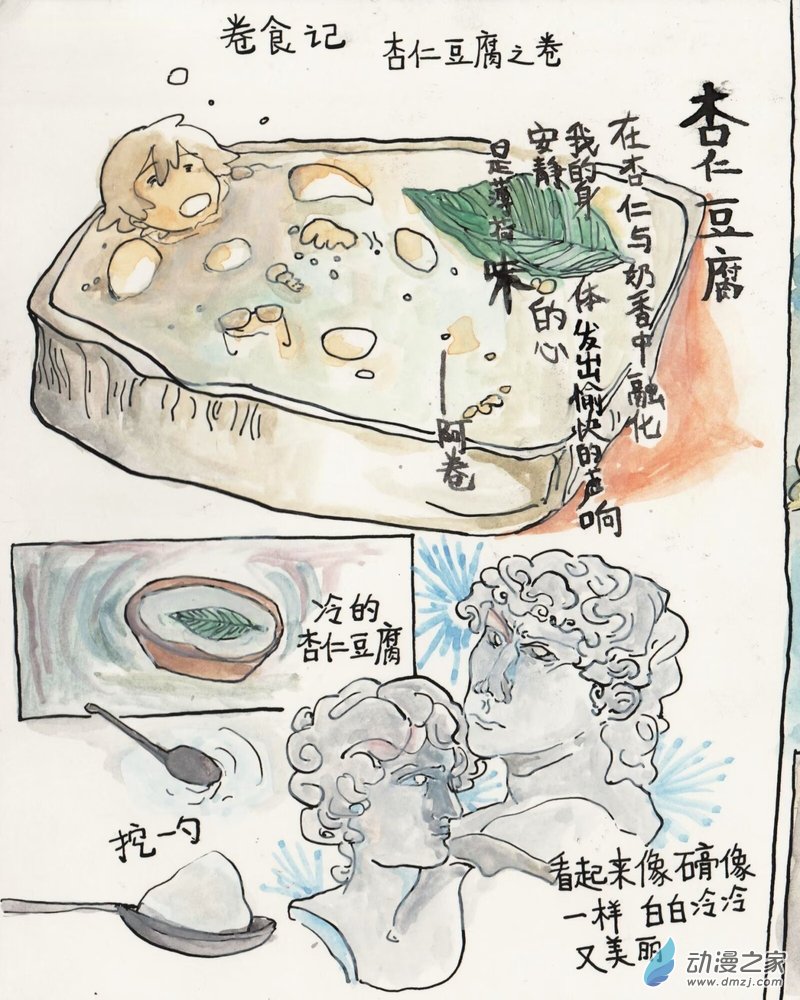 卷食记
杏仁豆腐之卷
杏仁豆腐
在杏仁与奶香中融化
我的身体发出愉快的声响
安静的心
是薄荷味
——阿卷
冷的
杏仁豆腐
挖一勺
看起来像石膏像
一样 白白冷冷
又美丽
动漫之家
www.dmzj.com